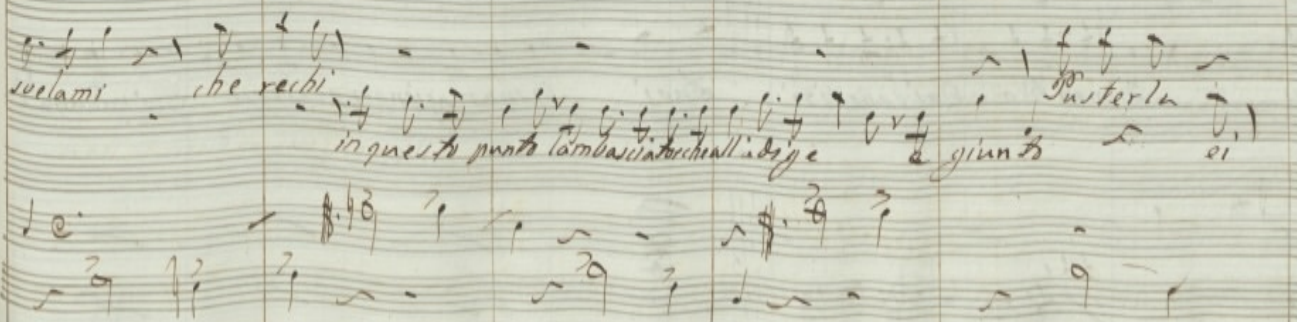 svelami che rechi Pusterla
in questo punto l'ambasciator che all'adige è giunto ei